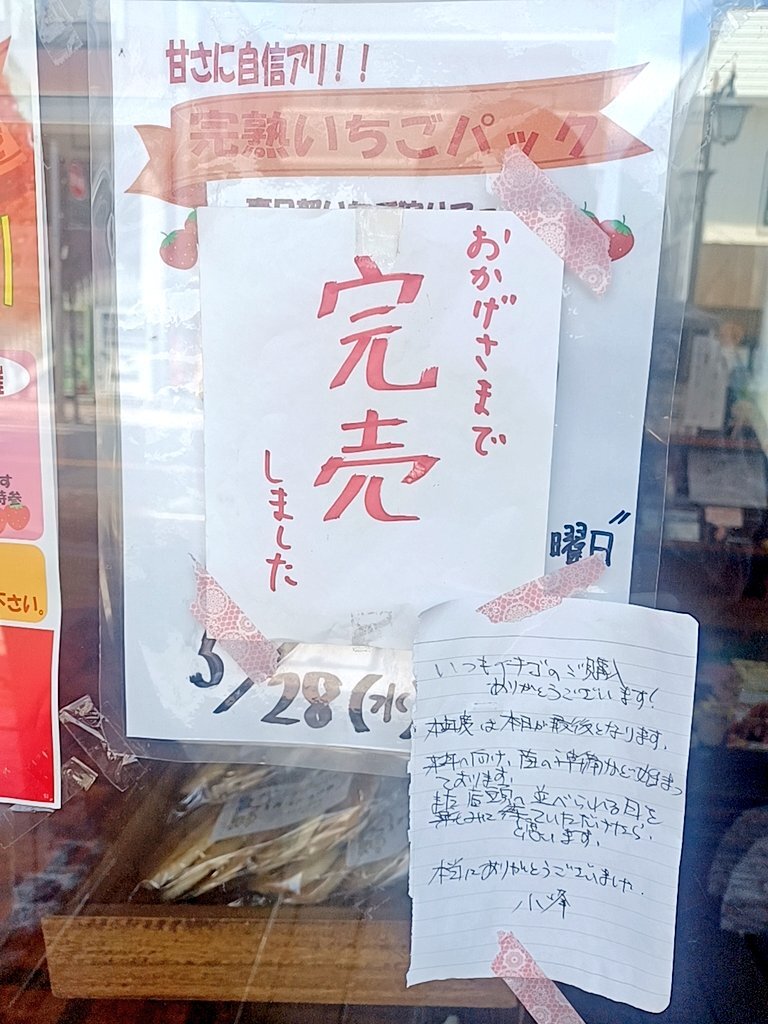 甘さに自信アリ！！
完熟いちごパック
おかげさまで
完売
しました
曜日
5/28(水)
いつもイチゴのご購入
ありがとうございます!
本年度は本日が最後となります。
来年へ向け、苗の準備がもう始まっ
ております。
また店頭へ並べられる日を
楽しみに待っていただけたら、
と思います。
本当にありがとうございました。
小峰
す
下さい。